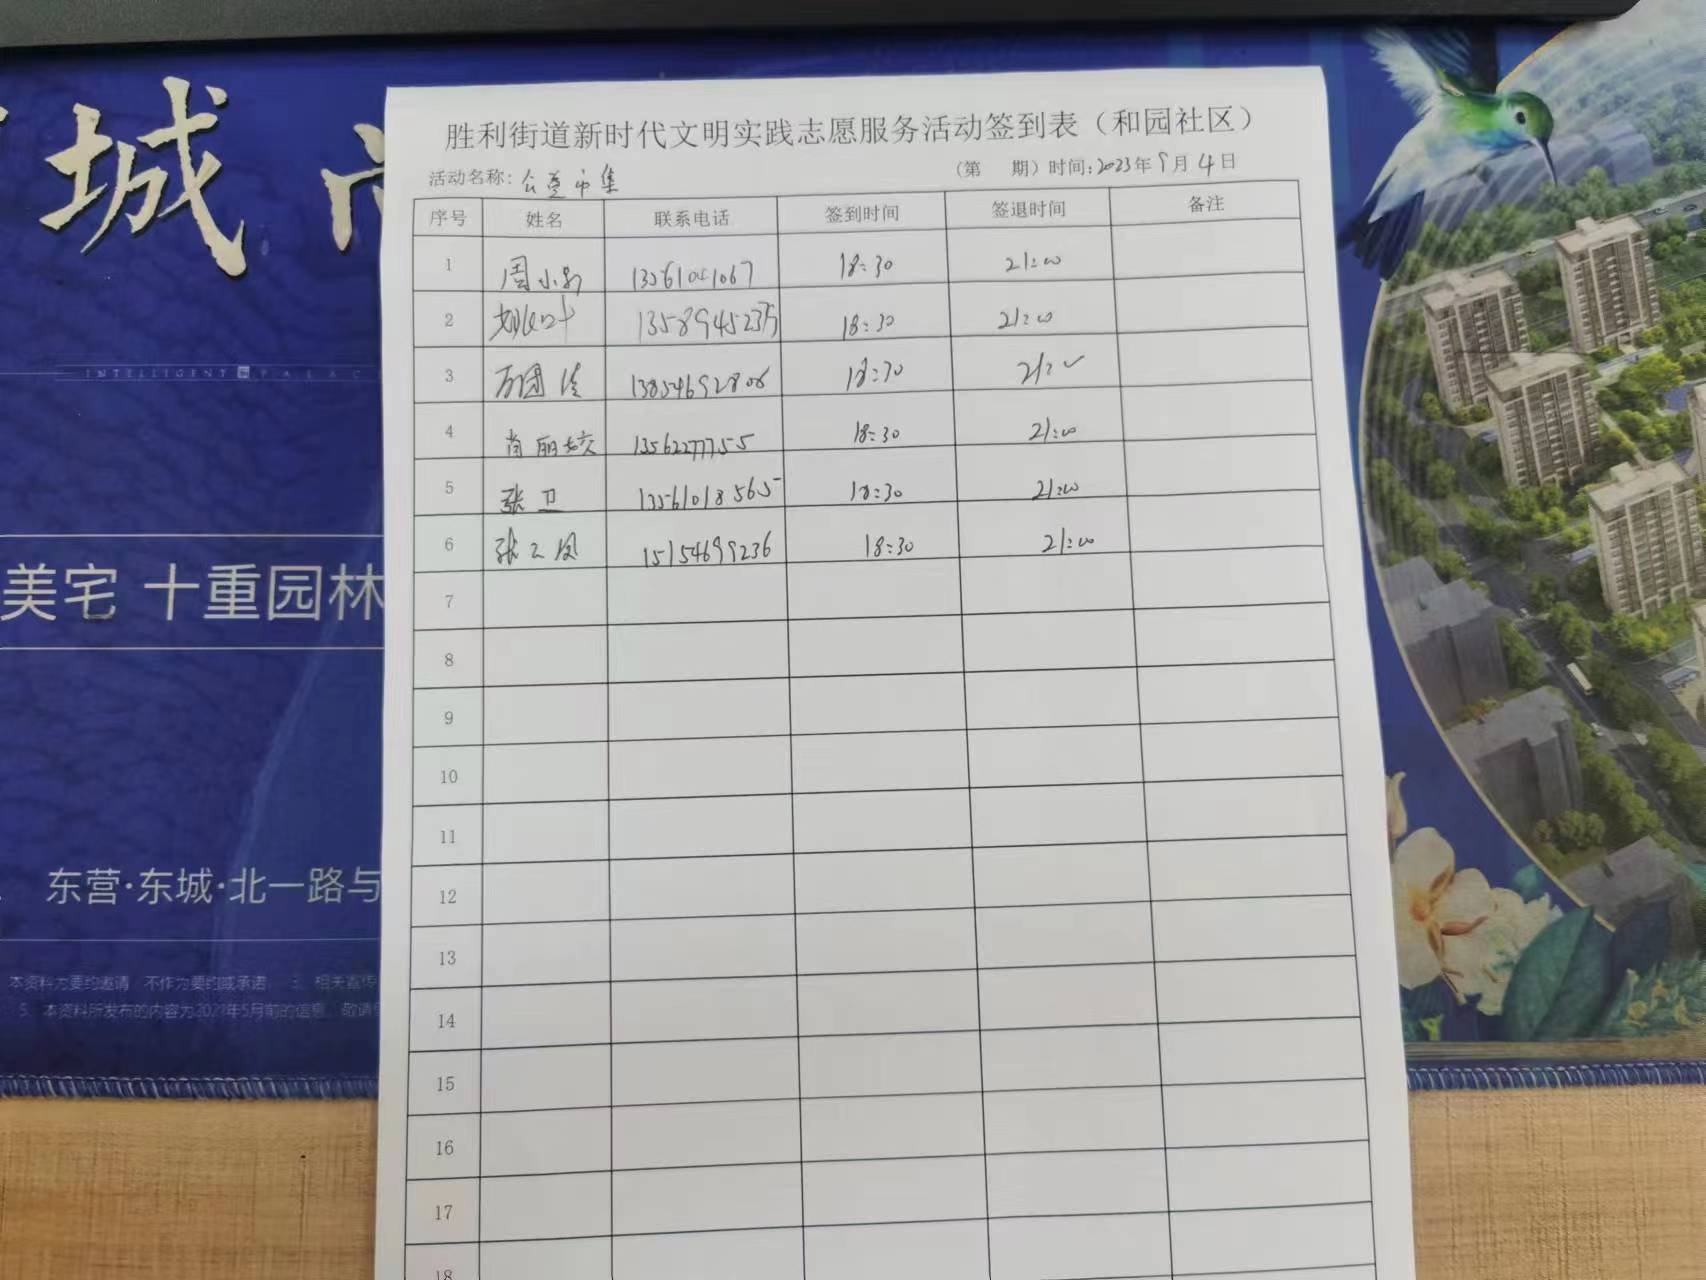 城
INTELLIGENT PALAC
美宅 十重园林
东营·东城·北一路与
本资料为要约邀请 不作为要约或承诺, 3、相关宣传
5、本资料所发布的内容为2021年5月前的信息, 敬请
胜利街道新时代文明实践志愿服务活动签到表（和园社区）
活动名称：公益市集 （第 期）时间：2023年9月4日
序号 姓名 联系电话 签到时间 签退时间 备注
1 周小 13561041067 18:30 21:00
2 18:30 21:00
3 13854692806 18:30 21:00
4 肖丽姣 13562277755 18:30 21:00
5 张卫 13561018565 18:30 21:00
6 张云凤 15154699236 18:30 21:00
7
8
9
10
11
12
13
14
15
16
17
18